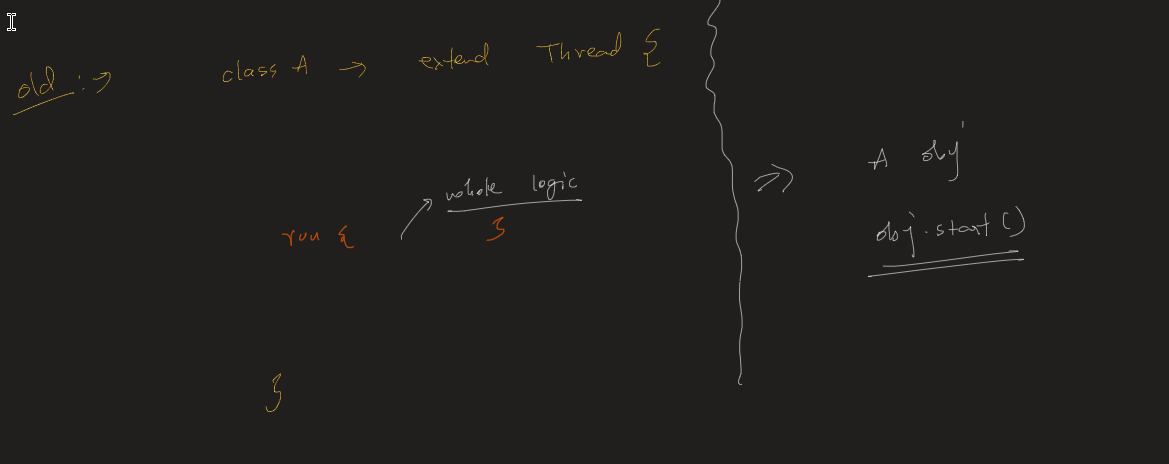 old :→ class A → extend Thread {
whole logic
run { }
}
⇒ A obj
obj.start()